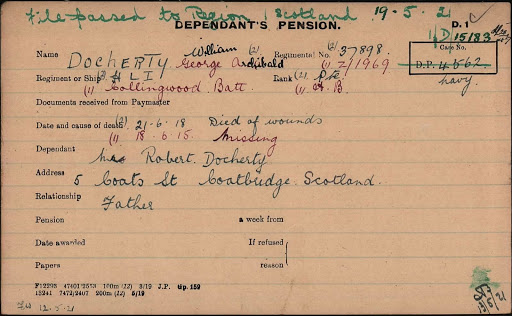 File passed to Region Scotland 19-5-21
DEPENDANT'S PENSION. D.1
1/D/15183
Case No.
D.P. 4562
Navy.
William (2)
Name DOCHERTY George Archibald Regimental No. (2) 37898.
(1) Z/1969
Regiment or Ship (2) H L I Rank (2) Pte
(1) Collingwood Batt. (1) A.B.
Documents received from Paymaster
Date and cause of death (2) 21-6-18 Died of wounds
(1) 18-6-15. Missing
Dependant Robert Docherty
Address 5 Coats St Coatbridge Scotland.
Relationship Father
Pension a week from
Date awarded If refused
Papers reason
F12293 47401/2533 100m (12) 3/19 J.P. Gp. 159
15241 7472/2407 200m (12) 5/19
12-5-21